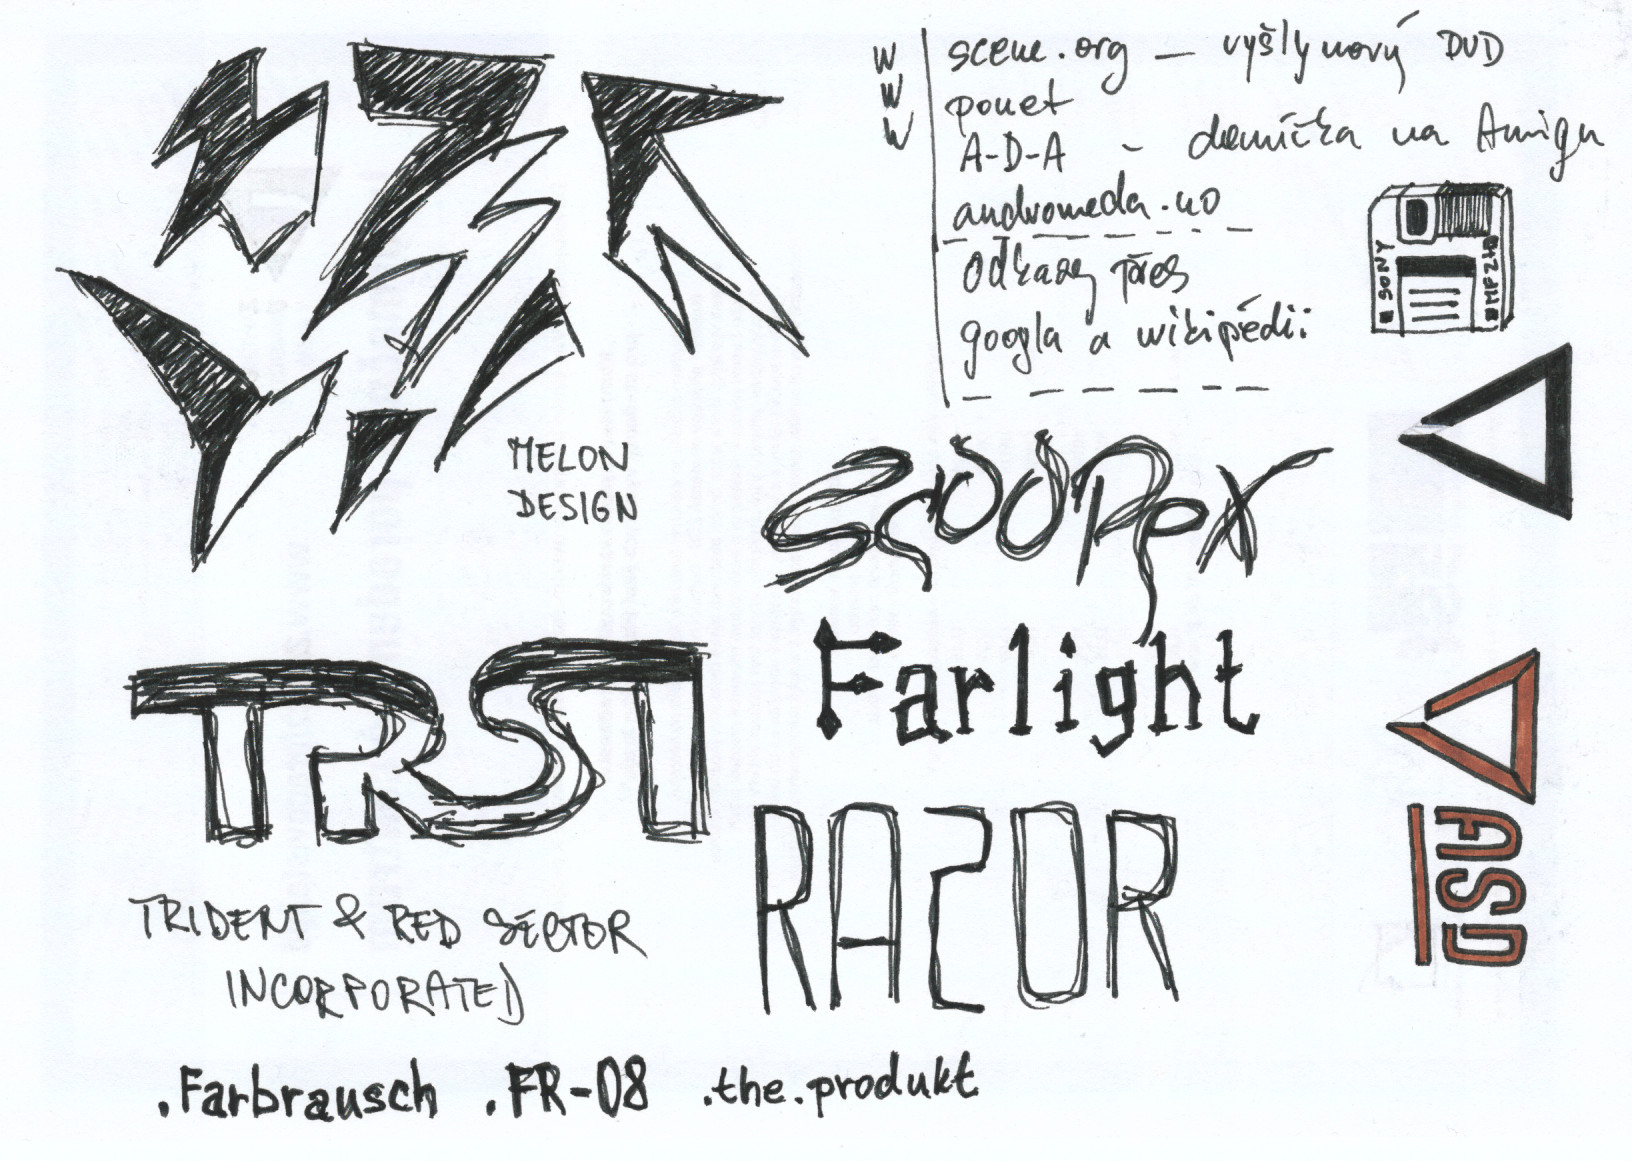 www
scene.org — vyšly nový DVD
pouet
A-D-A - demíčka na Amigu
andromeda.no
odkazy přes
googla a wikipédii
SONY
MF2HD
MELON
DESIGN
SCOOPEX
Farlight
TRSI
RAZOR
TRIDENT & RED SECTOR
INCORPORATED
ASD
.Farbrausch .FR-08 .the.produkt